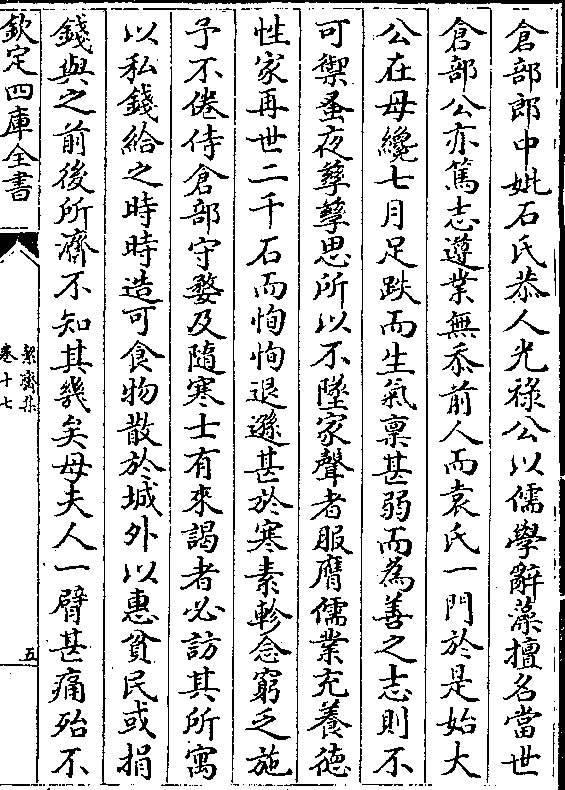 倉部郎中妣石氏恭人光祿公以儒學辭藻擅名當世
倉部公亦篤志遵業無忝前人而袁氏一門於是始大
公在母纔七月足跌而生氣稟甚弱而為善之志則不
可禦蚤夜孳孳思所以不墜家聲者服膺儒業充養德
性家再世二千石而恂恂退遜甚於寒素軫念窮乏施
予不倦侍倉部守婺及隨寒士有來謁者必訪其所寓
以私錢給之時時造可食物散於城外以惠貧民或捐
錢與之前後所濟不知其幾矣母夫人一臂甚痛殆不
欽定四庫全書
絜齋集
卷十七
五